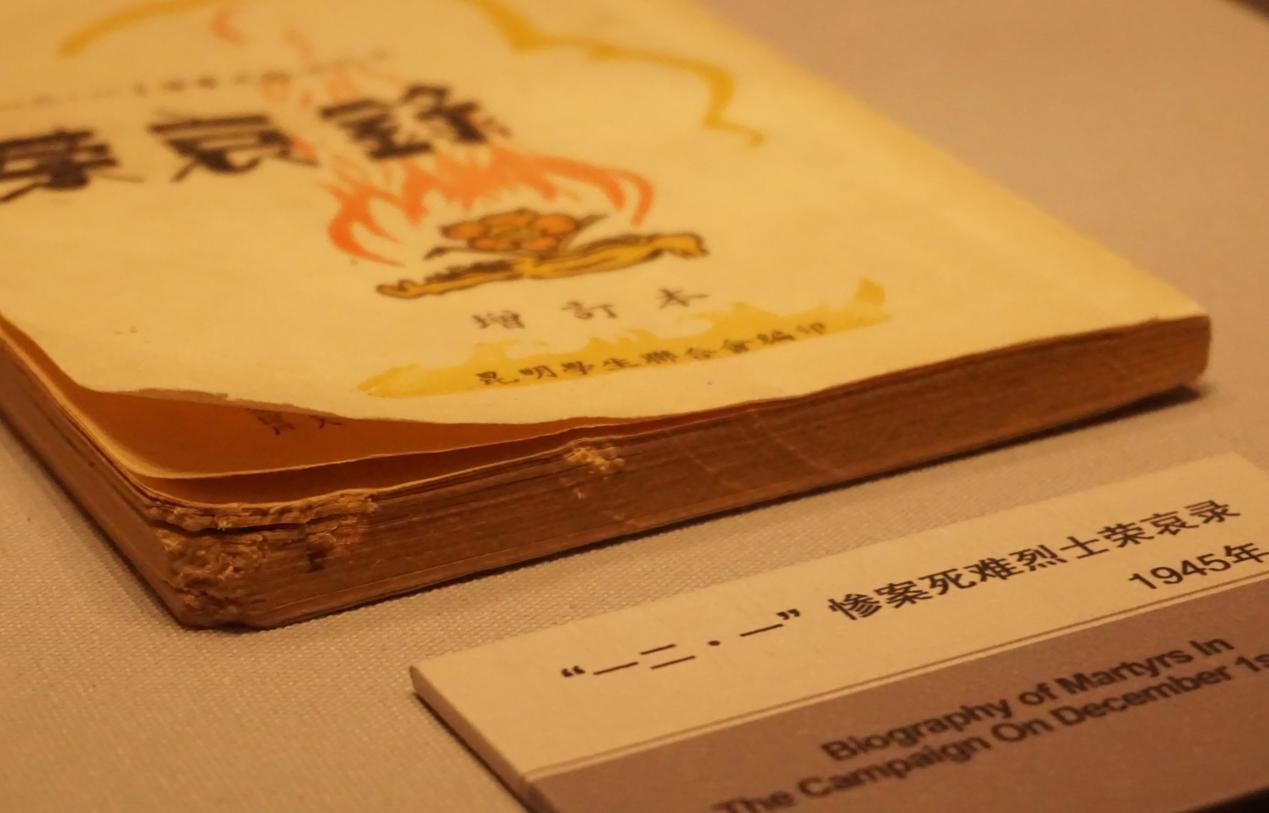 榮哀錄
增訂本
昆明學生聯合會編印
“一二·一”惨案死难烈士荣哀录
1945年
Biography of Martyrs In
The Campaign On December 1s